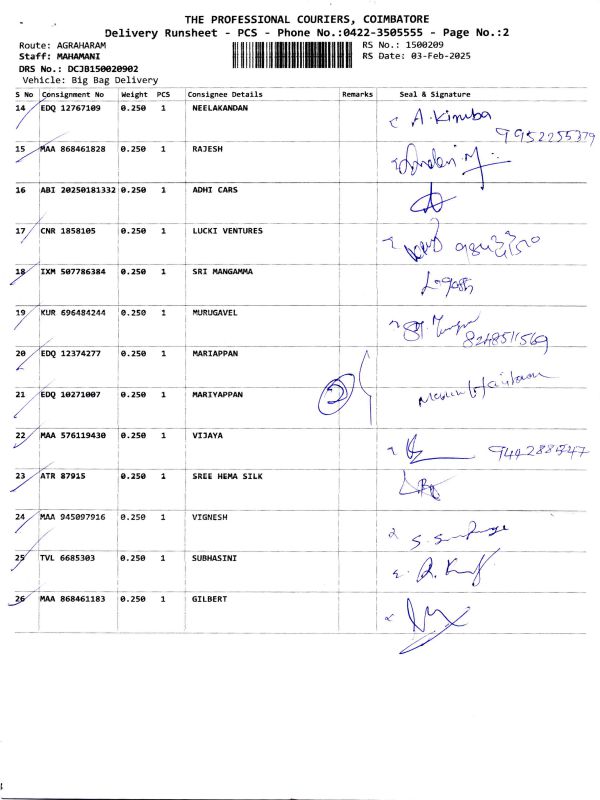 THE PROFESSIONAL COURIERS, COIMBATORE
Delivery Runsheet - PCS - Phone No.:0422-3505555 - Page No.:2
Route: AGRAHARAM RS No.: 1500209
Staff: MAHAMANI RS Date: 03-Feb-2025
DRS No.: DCJB150020902
Vehicle: Big Bag Delivery
S No Consignment No Weight PCS Consignee Details Remarks Seal & Signature
14 EDQ 12767109 0.250 1 NEELAKANDAN A. Kiruba
9952255379
15 MAA 868461828 0.250 1 RAJESH
16 ABI 20250181332 0.250 1 ADHI CARS
17 CNR 1858105 0.250 1 LUCKI VENTURES
18 IXM 507786384 0.250 1 SRI MANGAMMA
19 KUR 696484244 0.250 1 MURUGAVEL
8248511569
20 EDQ 12374277 0.250 1 MARIAPPAN
21 EDQ 10271007 0.250 1 MARIYAPPAN 2
22 MAA 576119430 0.250 1 VIJAYA
23 ATR 87915 0.250 1 SREE HEMA SILK
24 MAA 945097916 0.250 1 VIGNESH
25 TVL 6685303 0.250 1 SUBHASINI
26 MAA 868461183 0.250 1 GILBERT